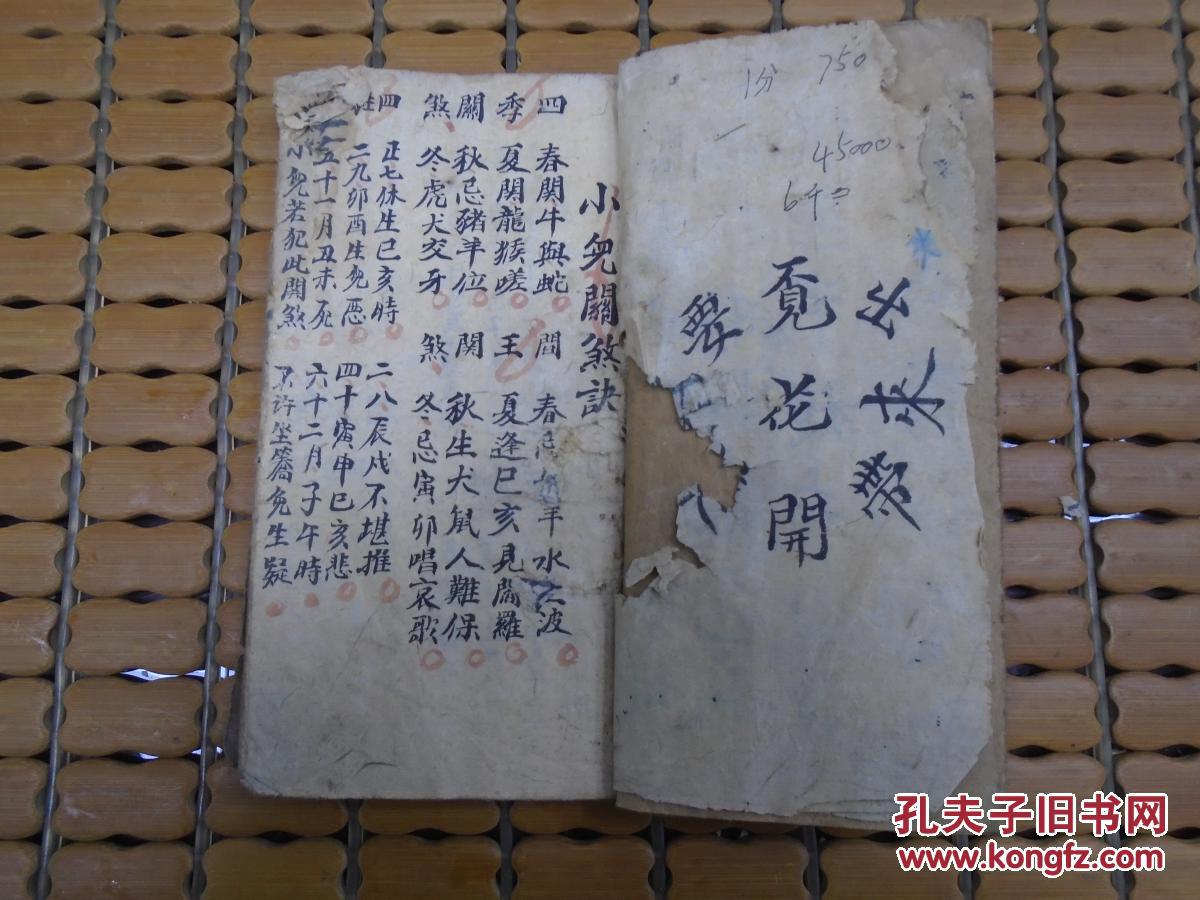 1分 750
45000
6千
出来帶
覔花開
小兒關煞訣
四季關煞
春関牛與蛇
夏関龍猴嗟
秋忌猪羊位
冬虎犬交牙
閻王関煞
春忌羊水波
夏逢巳亥見閻羅
秋生犬鼠人難保
冬忌寅卯唱哀歌
四
正七休生巳亥時
二八辰戌不堪推
二九卯酉生兒惡
四十寅申巳亥悲
五十一月丑未死
六十二月子午時
小兒若犯此関煞
許坐轎免生疑
孔夫子旧书网
www.kongfz.com